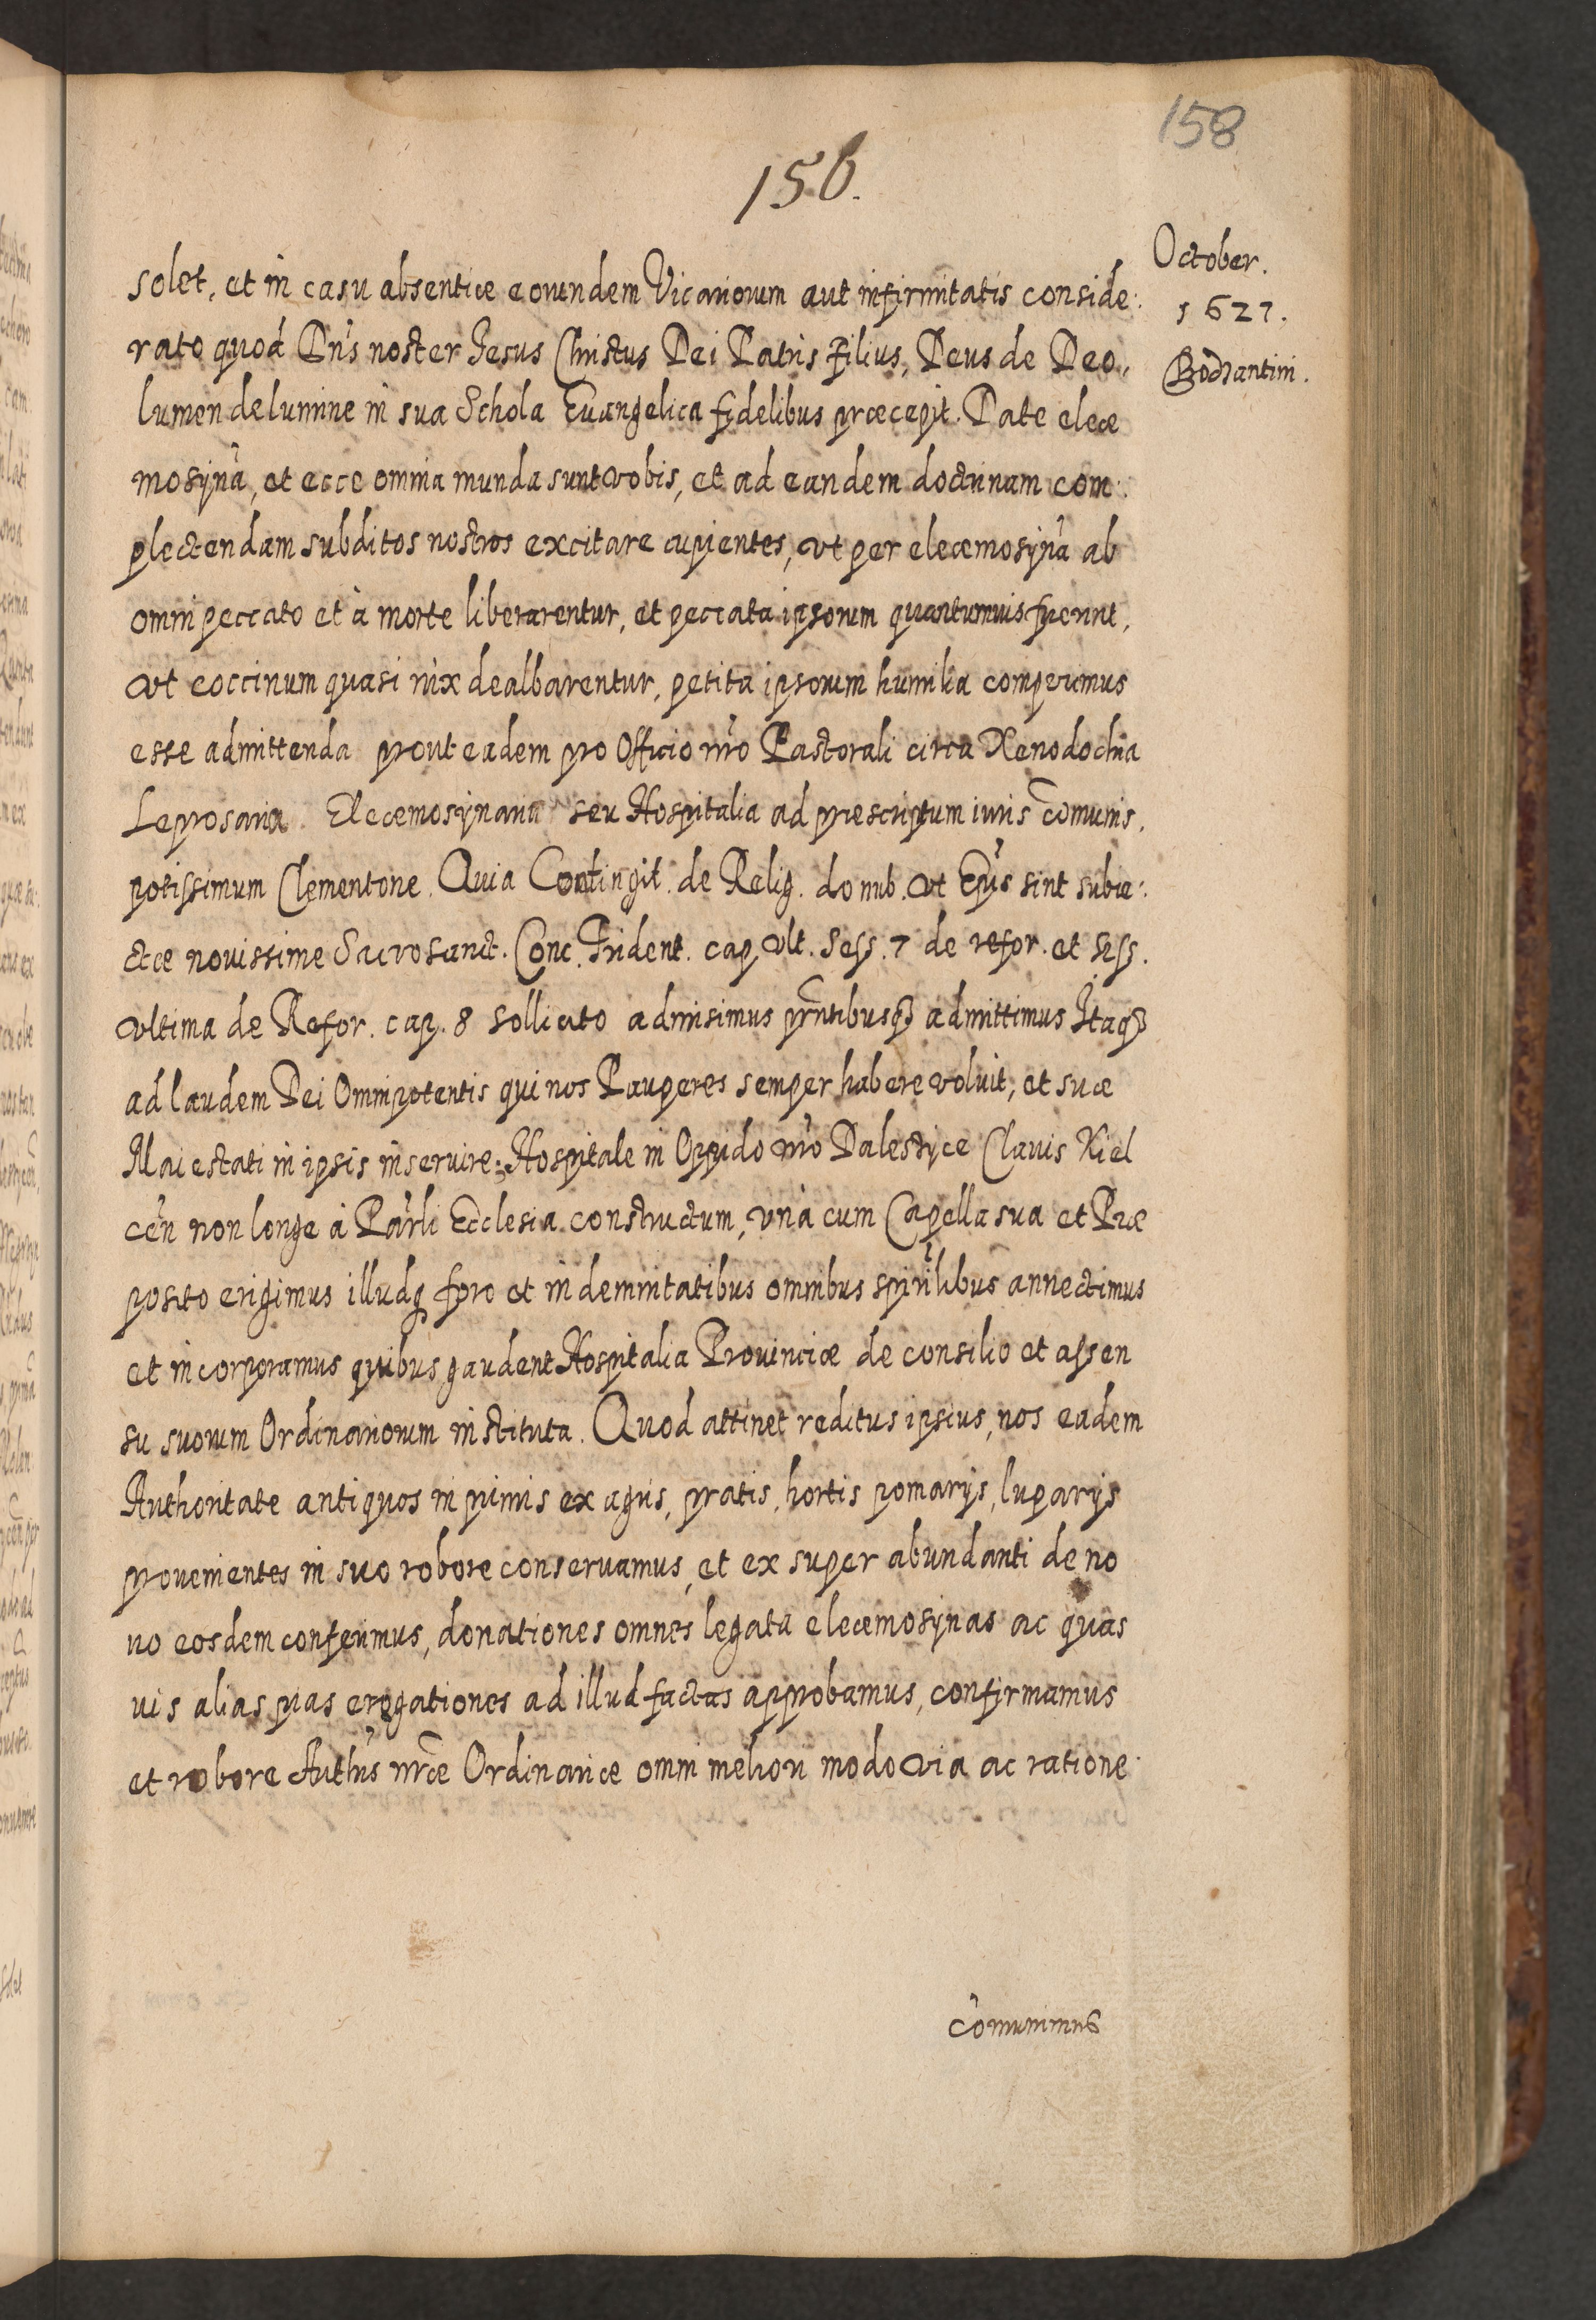 158
156.
October.
1627.
Bodzantini.
solet, et in casu absentiæ eorundem Vicariorum aut infirmitatis conside:
rato quod Dn̄s noster Jesus Christus Dei Patris Filius, Deus de Deo,
lumen de lumine in sua Schola Euangelica fidelibus præcepit. Date elee
mosynā, et ecce omnia munda sunt vobis, et ad eandem doctrinam com:
plectendam subditos nostros excitare cupientes, vt per eleemosynā ab
omni peccato et à morte liberarentur, et peccata ipsorum quantumuis fuerint,
vt coccinum quasi nix dealbarentur, petita ipsorum humilia comperimus
esse admittenda prout eadem pro Officio nr̄o Pastorali circa Xenodochia
Leprosaria Eleemosynaria seu Hospitalia ad prescriptum iuris cōmunis,
potissimum Clementone. Quia Contingit. de Relig. domub. vt Ep̄is sint subie:
ctæ nouissime Sacrosanct. Conc. Trident. cap. vlt. Sess. 7 de refor. et sess.
vltima de Refor. cap. 8 sollicito admisimus pr̄ntibusq3 admittimus Itaq3
ad laudem Dei Omnipotentis qui nos Pauperes semper habere voluit, et suæ
Maiestati in ipsis inseruire; Hospitale in Oppido nr̄o Dalestyce Clauis Kiel
cēn non longe à Par̄li Ecclesia constructum, vnà cum Capella sua et Præ
posito erigimus illudq foro et indemnitatibus omnibus spir̄ilibus annectimus
et incorporamus quibus gaudent Hospitalia Prouinciæ de consilio et assen
su suorum Ordinariorum instituta. Quod attinet reditus ipsius, nos eadem
Authoritate antiquos inprimis ex agris, pratis, hortis pomarys, luparys
prouenientes in suo robore conseruamus, et ex super abundanti de no
uo eosdem conferimus, donationes omnes legata eleemosynas ac quas
uis alias pias erogationes ad illud factas approbamus, confirmamus
et robore Auth̄is nr̄æ Ordinariæ omni meliori modo via ac ratione
cōmunimus